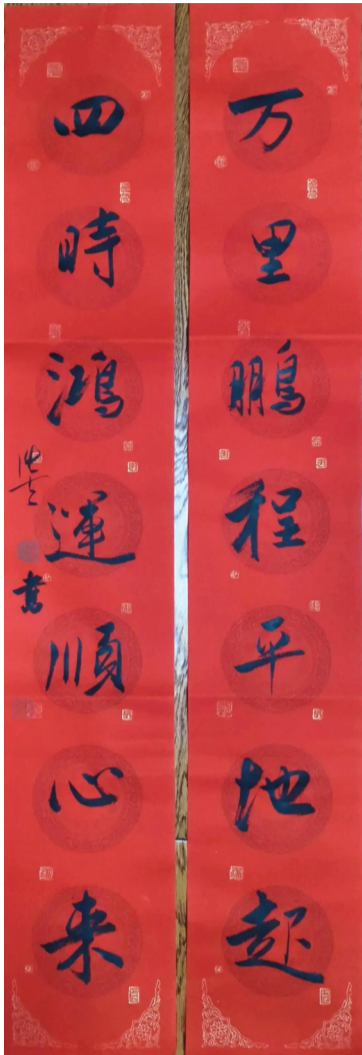 万里鹏程平地起
四時鴻運順心来
書